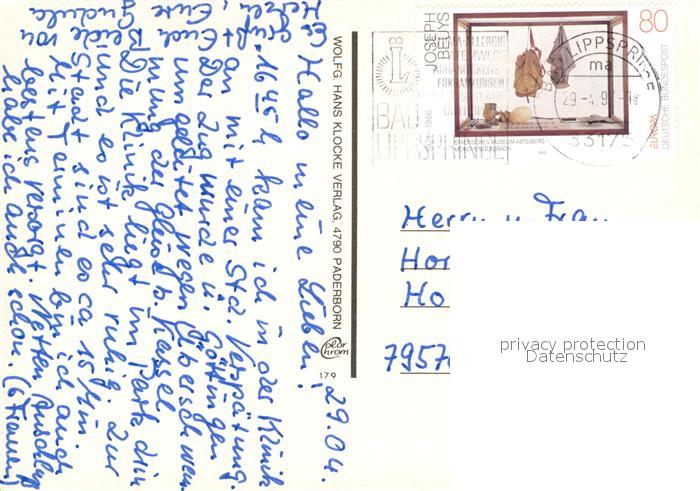 Hallo meine Lieben! 29.04.
Um 16 45 h kam ich in der Klinik
an mit einer Std. Verspätung.
Der Zug wurde ü. Göttingen
umgeleitet wegen Überschwem
mung der Gleise b. Kassel
Die Klinik liegt im Park drin
und es ist sehr ruhig. Zur
Stadt sind es ca 15 Min
Mit Terminen bin ich auch
bestens versorgt. Netten Anschluß
habe ich auch schon. (6 Frauen)
WOLFG. HANS KLOCKE VERLAG, 4790 PADERBORN
color
chrom
179
JOSEPH
BEUYS
80
DEUTSCHE BUNDESPOST
EUROPA
STÄDTISCHES MUSEUM ABTEIBERG
MÖNCHENGLADBACH
1993
BAD LIPPSPRINGE
ma
33175
BAD
LIPPSPRINGE
Herrn u. Frau
Hor
Ho
7957
privacy protection
Datenschutz